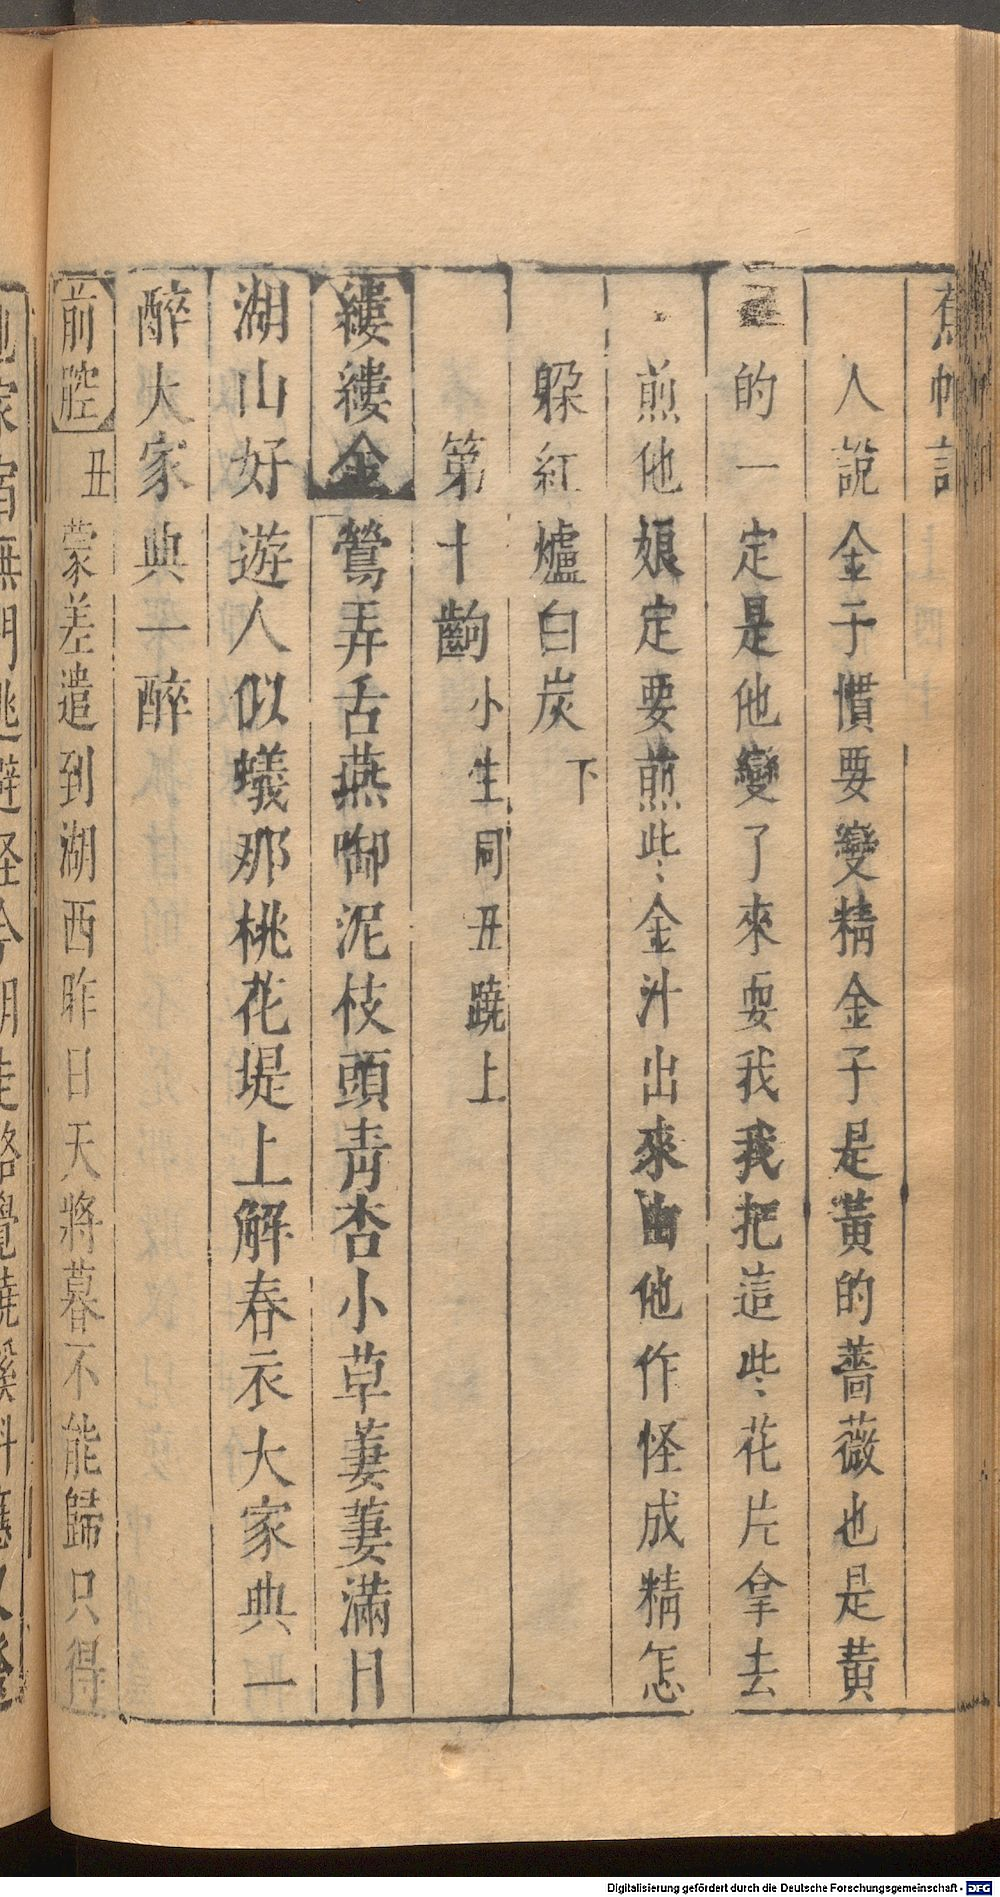 蕉帕記
人說金子慣要變精金子是黃的薔薇也是黃
的一定是他變了來耍我我把這些花片拿去
煎他娘定要煎些金汁出來由他作怪成精怎
躲紅爐白炭 下
第十齣 小生同丑蹺上
縷縷金 鶯弄舌燕啣泥枝頭青杏小草萋萋滿目
湖山好遊人似蟻那桃花堤上解春衣大家典一
醉大家典一醉
前腔 丑 蒙差遣到湖西昨日天將暮不能歸只得
宿無門逃避怪今朝走路覺蹺蹊
Digitalisierung gefördert durch die Deutsche Forschungsgemeinschaft - DFG